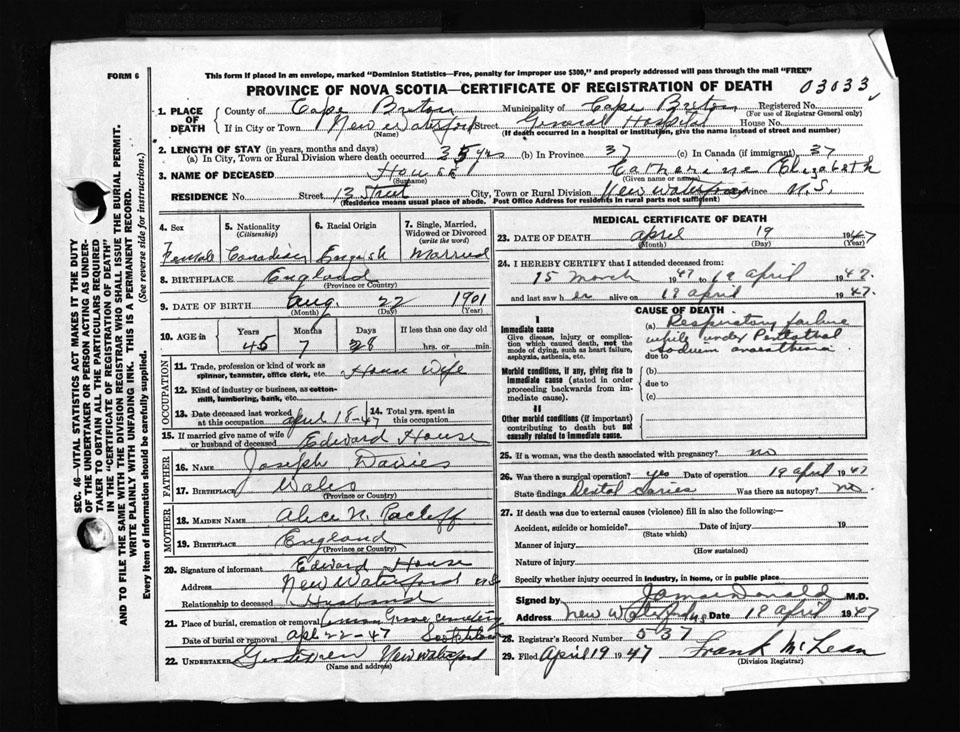 FORM 6
This form if placed in an envelope, marked "Dominion Statistics—Free, penalty for improper use $300," and properly addressed will pass through the mail "FREE"
PROVINCE OF NOVA SCOTIA—CERTIFICATE OF REGISTRATION OF DEATH 03033
1. PLACE OF DEATH
County of Cape Breton Municipality of Cape Breton Registered No.
(For use of Registrar General only)
If in City or Town New Waterford Street General Hospital House No.
(Name) (If death occurred in a hospital or institution, give the name instead of street and number)
2. LENGTH OF STAY (in years, months and days)
(a) In City, Town or Rural Division where death occurred 35 yrs (b) In Province 37 (c) In Canada (if immigrant) 37
3. NAME OF DECEASED House Catherine Elizabeth
(Surname) (Given name or names)
RESIDENCE No. Street 13 Street City, Town or Rural Division New Waterford Province N.S.
(Residence means usual place of abode. Post Office Address for residents in rural parts not sufficient)
4. Sex Female
5. Nationality (Citizenship) Canadian
6. Racial Origin English
7. Single, Married, Widowed or Divorced (write the word) Married
8. BIRTHPLACE England
(Province or Country)
9. DATE OF BIRTH Aug. 22 1901
(Month) (Day) (Year)
10. AGE in Years Months Days If less than one day old
45 7 28 hrs. or min.
OCCUPATION
11. Trade, profession or kind of work as spinner, teamster, office clerk, etc. House Wife
12. Kind of industry or business, as cotton-mill, lumbering, bank, etc.
13. Date deceased last worked at this occupation April 18-47
14. Total yrs. spent in this occupation
15. If married give name of wife or husband of deceased Edward House
FATHER
16. NAME Joseph Davies
17. BIRTHPLACE Wales
(Province or Country)
MOTHER
18. MAIDEN NAME Alice N.
19. BIRTHPLACE England
(Province or Country)
20. Signature of informant Edward House
Address New Waterford N.S
Relationship to deceased Husband
21. Place of burial, cremation or removal Grove Cemetery
Date of burial or removal Apl 22-47
22. UNDERTAKER New Waterford
(Name and address)
MEDICAL CERTIFICATE OF DEATH
23. DATE OF DEATH April 19 1947
(Month) (Day) (Year)
24. I HEREBY CERTIFY that I attended deceased from:
15 March 1947 to 19 April 1947.
and last saw her alive on 18 April 1947.
CAUSE OF DEATH
I
Immediate cause
Give disease, injury or complication which caused death, not the mode of dying, such as heart failure, asphyxia, asthenia, etc.
(a) Respiratory failure
while under Pentothal
sodium anaesthesia
due to
Morbid conditions, if any, giving rise to immediate cause (stated in order proceeding backwards from immediate cause).
(b)
due to
(c)
II
Other morbid conditions (if important) contributing to death but not causally related to immediate cause.
25. If a woman, was the death associated with pregnancy? no
26. Was there a surgical operation? yes Date of operation 19 April 1947
State findings Dental Caries Was there an autopsy? no
27. If death was due to external causes (violence) fill in also the following:—
Accident, suicide or homicide? Date of injury 19
(State which)
Manner of injury
(How sustained)
Nature of injury
Specify whether injury occurred in industry, in home, or in public place
Signed by M.D.
Address New Waterford NS Date 19 April 1947
28. Registrar's Record Number 537
29. Filed April 19 1947 Frank McLean
(Division Registrar)
SEC. 46—VITAL STATISTICS ACT MAKES IT THE DUTY
OF THE UNDERTAKER OR PERSON ACTING AS UNDERTAKER TO OBTAIN ALL THE PARTICULARS REQUIRED
IN THE "CERTIFICATE OF REGISTRATION OF DEATH"
AND TO FILE THE SAME WITH THE DIVISION REGISTRAR WHO SHALL ISSUE THE BURIAL PERMIT.
WRITE PLAINLY WITH UNFADING INK. THIS IS A PERMANENT RECORD.
Every item of information should be carefully supplied. (See reverse side for instructions.)